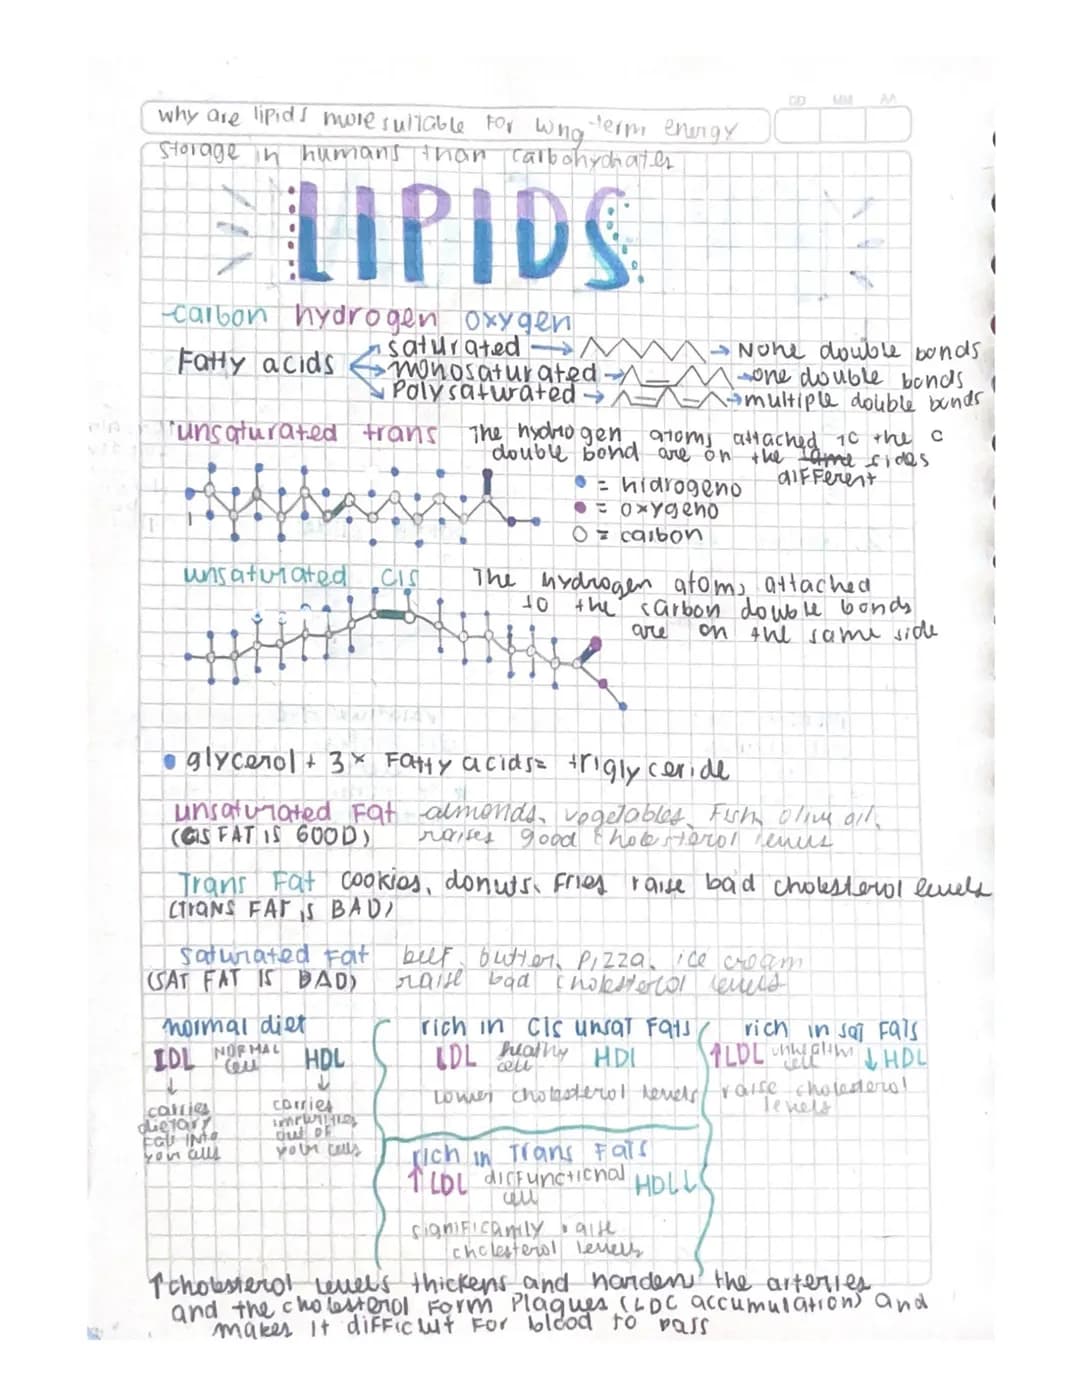 DD MM AA
why are lipids more suitable for long-term energy
storage in humans than carbohydrates
LIPIDS
carbon hydrogen oxygen
Fatty acids
saturated → → None double bonds
monosaturated → → one double bonds
Polysaturated → → multiple double bonds
unsaturated trans The hydrogen atoms attached to the C
double bond are on the same sides
different
= hidrogeno
= oxygeno
= carbon
unsaturated cis The hydrogen atoms attached
to the carbon double bonds
are on the same side
• glycerol + 3x Fatty acids = triglyceride
unsaturated Fat almonds, vegetables, Fish, olive oil,
(CIS FAT IS GOOD) raises good cholesterol levels
Trans Fat cookies, donuts, Fries raise bad cholesterol levels
(TRANS FAT IS BAD)
saturated Fat beef, butter, Pizza, ice cream
(SAT FAT IS BAD) raise bad cholesterol levels
normal diet
IDL NORMAL cell HDL
↓ ↓
carries dietary Fat INto your cells
carries impurities out of your cells
rich in CIS unsat Fats
LDL healthy cell HDl
Lower cholesterol levels
rich in sat Fats
↑LDL unhealthy cell ↓HDL
raise cholesterol
levels
rich in Trans Fats
↑LDL disFunctional cell HDL↓
significantly raise
cholesterol levels
↑cholesterol levels thickens and harden the arteries
and the cholesterol Form Plaques (LDC accumulation) and
makes it difficult For blood to pass